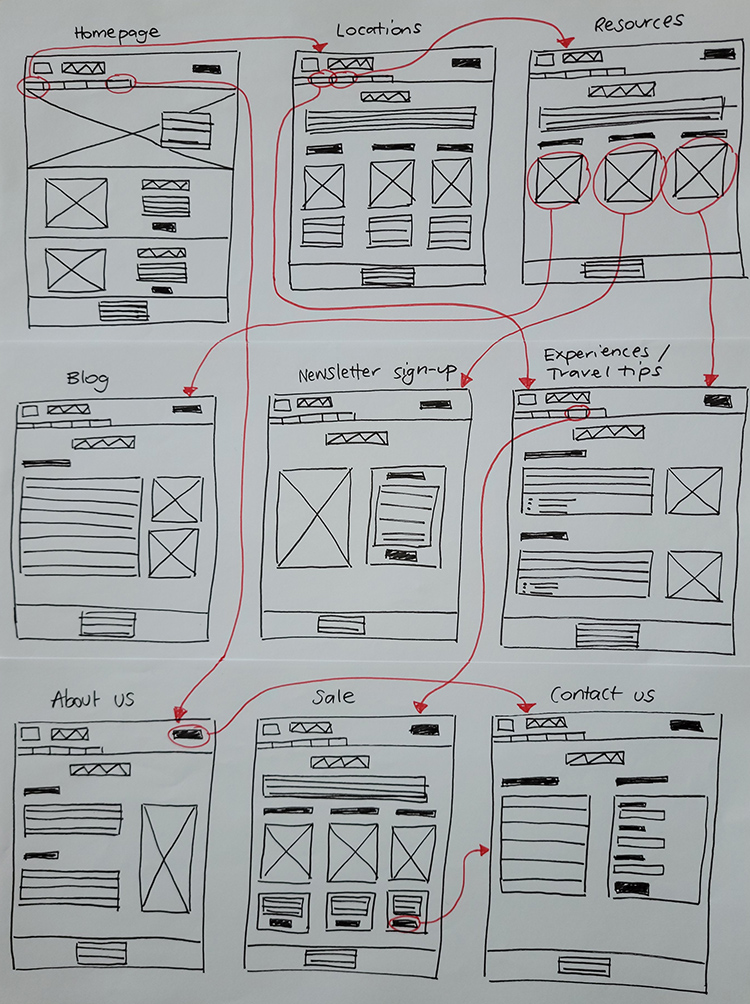 Homepage
Locations
Resources
Blog
Newsletter sign-up
Experiences /
Travel tips
About us
Sale
Contact us